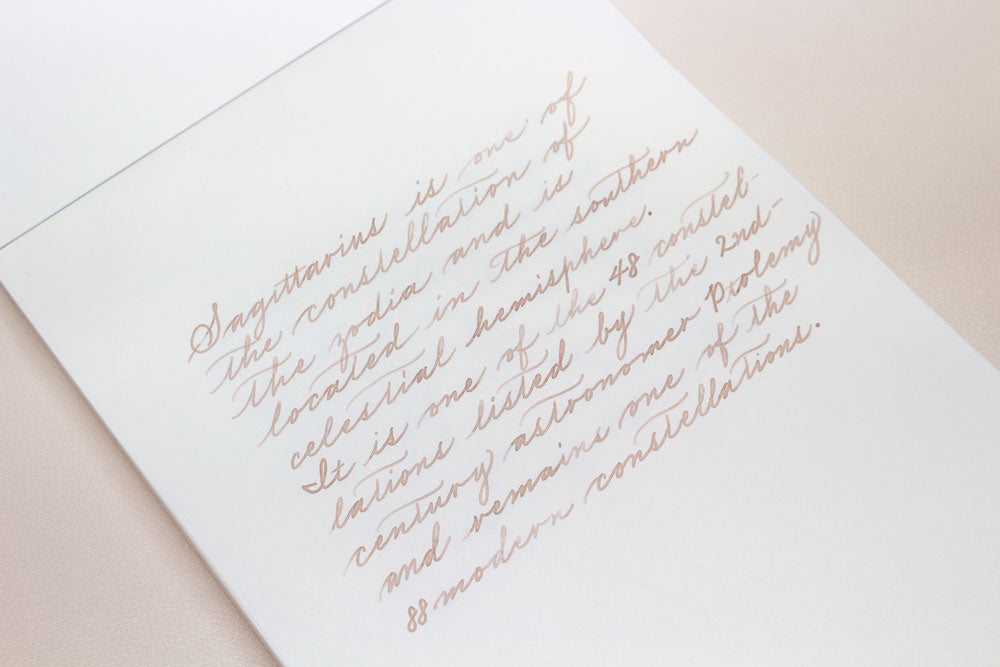 Sagittarius is one of
the constellation of
the zodia and is
located in the southern
celestial hemisphere.
It is one of the 48 constel-
lations listed by the 2nd-
century astronomer Ptolemy
and remains one of the
88 modern constellations.